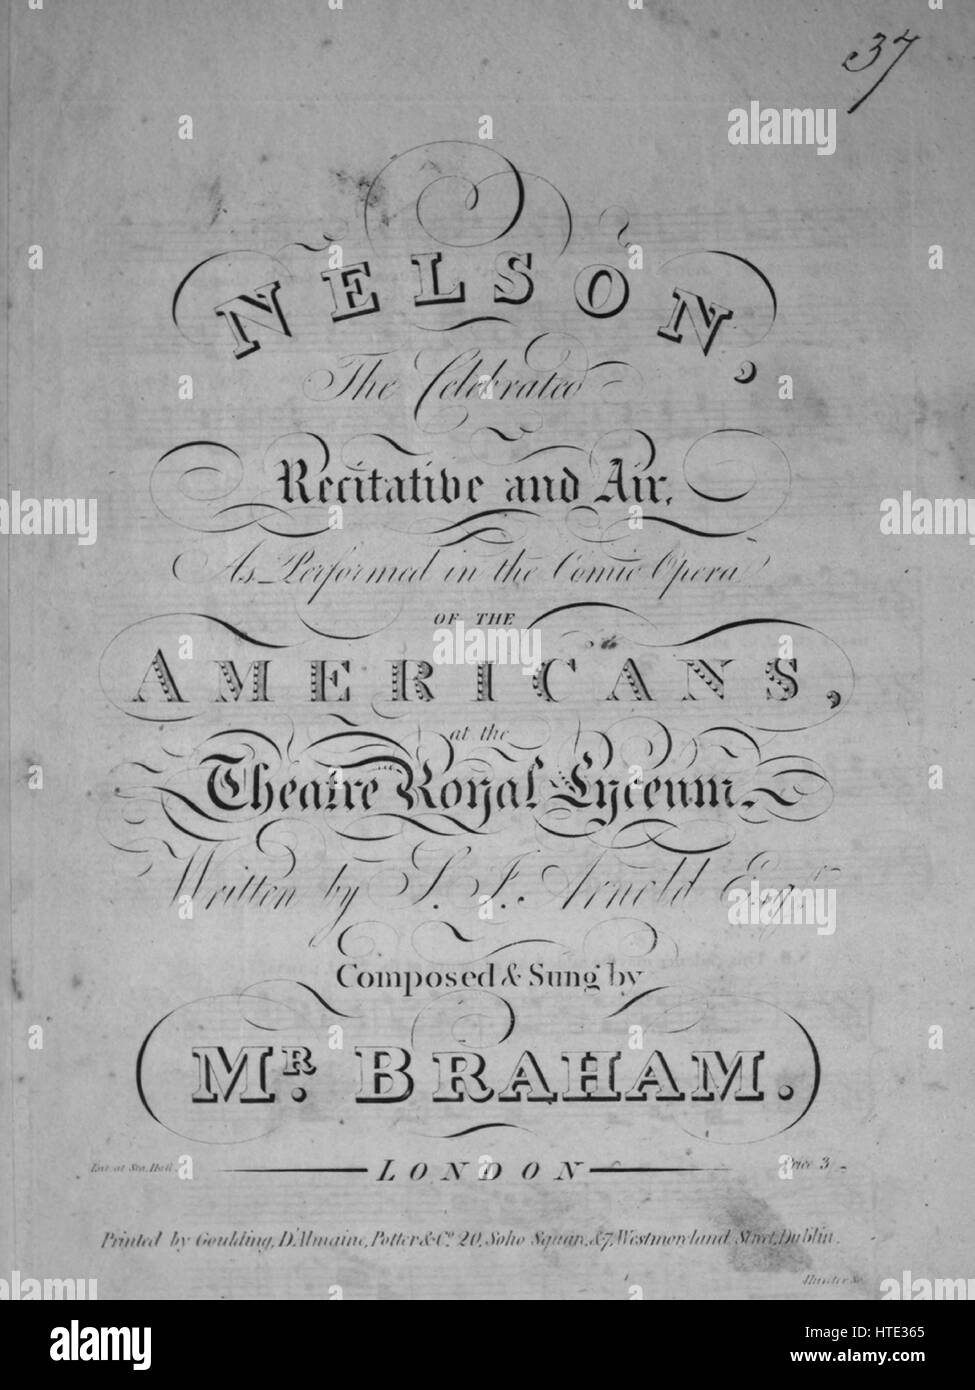 37
NELSON,
The Celebrated
Recitative and Air,
As Performed in the Comic Opera
OF THE
AMERICANS,
at the
Theatre Royal Lyceum.
Written by S. J. Arnold Esqr.
Composed & Sung by
MR. BRAHAM.
Ent. at Sta. Hall.
LONDON
Price 3/-
Printed by Goulding, D'Almaine, Potter & Co. 20, Soho Square, & 7, Westmoreland Street, Dublin.
a
alamy stock photo
alamy
HTE365
www.alamy.com